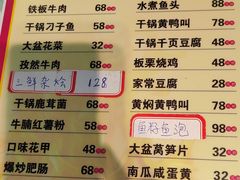 铁板牛肉 68
干锅刁子鱼 58
大盆花菜 32
孜然牛肉 68
三鲜杂烩 128
干锅鹿茸菌 68
牛腩红薯粉 58
口味花甲 48
爆炒肥肠 68
水煮鱼头 38
干锅黄鸭叫
干锅千页豆腐 48
板栗烧鸡 48
家常豆腐 28
黄焖黄鸭叫 58
鱼籽鱼泡 98
大盆莴笋片 32
南瓜咸蛋黄 32